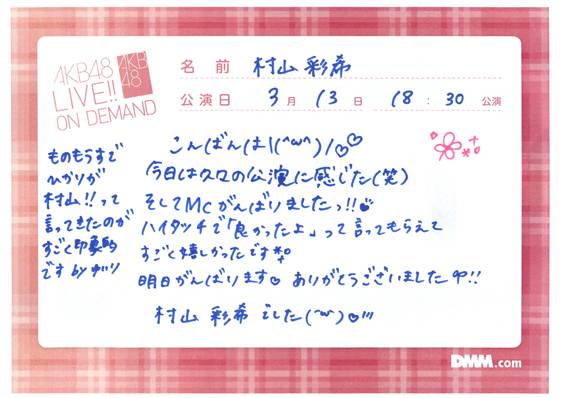 AKB48
LIVE!!
ON DEMAND
AKB
48
名前 村山 彩希
公演日 3月13日 18:30 公演
こんばんは\(^ω^)/♡♡
今日は久々の公演に感じた(笑)
そしてMCがんばりましたっ!!
ハイタッチで「良かったよ」って言ってもらえて
すごく嬉しかったです
明日がんばります♡ ありがとうございました!!
村山 彩希でした(^ω^)♡!!!
ものもうすで
ひかりが
村山!!って
言ってきたのが
すごく印象的
です by ゆいり
DMM.com